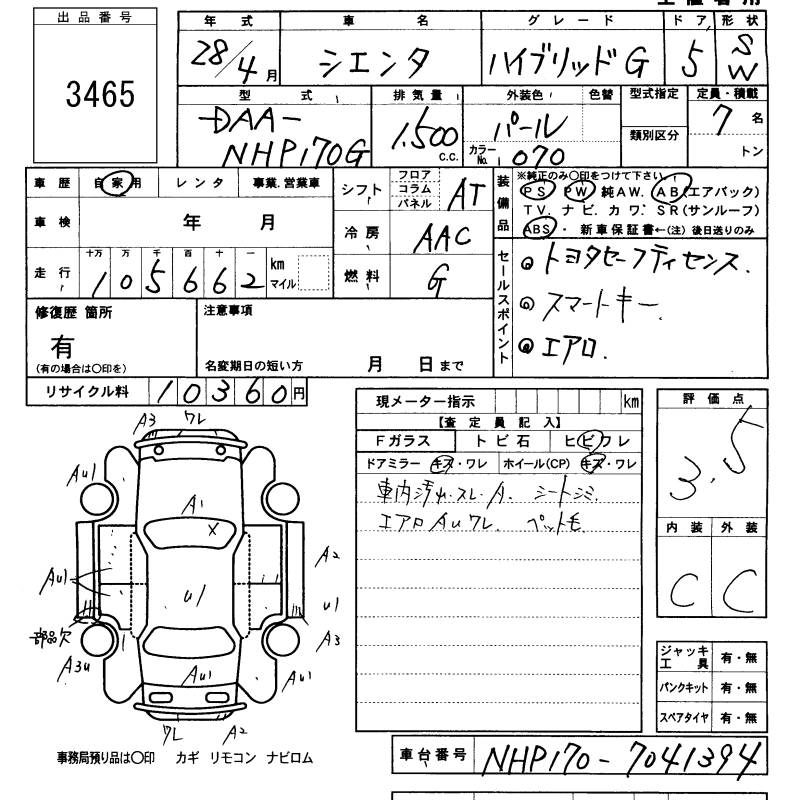 出品番号
3465
年式 車名 グレード ドア 形状
28/4月 シエンタ ハイブリッドG 5 SW
型式 排気量 外装色 色替 型式指定 定員・積載
DAA-NHP170G 1,500 C.C. パール 類別区分 7名
カラーNo. 070 トン
車歴 自家用 レンタ 事業.営業車
シフト フロア コラム パネル AT
車検 年 月
冷房 AAC
走行 十万 万 千 百 十 一
105662 km マイル
燃料 G
装備品
※純正のみ〇印をつけて下さい。
PS PW 純AW. AB(エアバック)
TV. ナビ. カワ. SR(サンルーフ)
ABS・ 新車保証書←(注) 後日送りのみ
セールスポイント
トヨタセーフティセンス.
スマートキー.
エアロ.
修復歴 箇所
有
(有の場合は〇印を)
注意事項
名変期日の短い方 月 日まで
リサイクル料 10360円
現メーター指示 km
【査定員記入】
Fガラス トビ石 ヒビワレ
ドアミラー キズ・ワレ ホイール(CP) キズ・ワレ
車内汚れ.スレ.A. シートシミ
エアロAuワレ. ペット毛
評価点
3.5
内装 外装
C C
A3 ワレ
Au1
A1
X
Au1
U1
A2
U1
部品欠
A3
A3u
Au1
Au1
ワレ A2
事務局預り品は〇印 カギ リモコン ナビロム
ジャッキ工具 有・無
パンクキット 有・無
スペアタイヤ 有・無
車台番号 NHP170-7041394